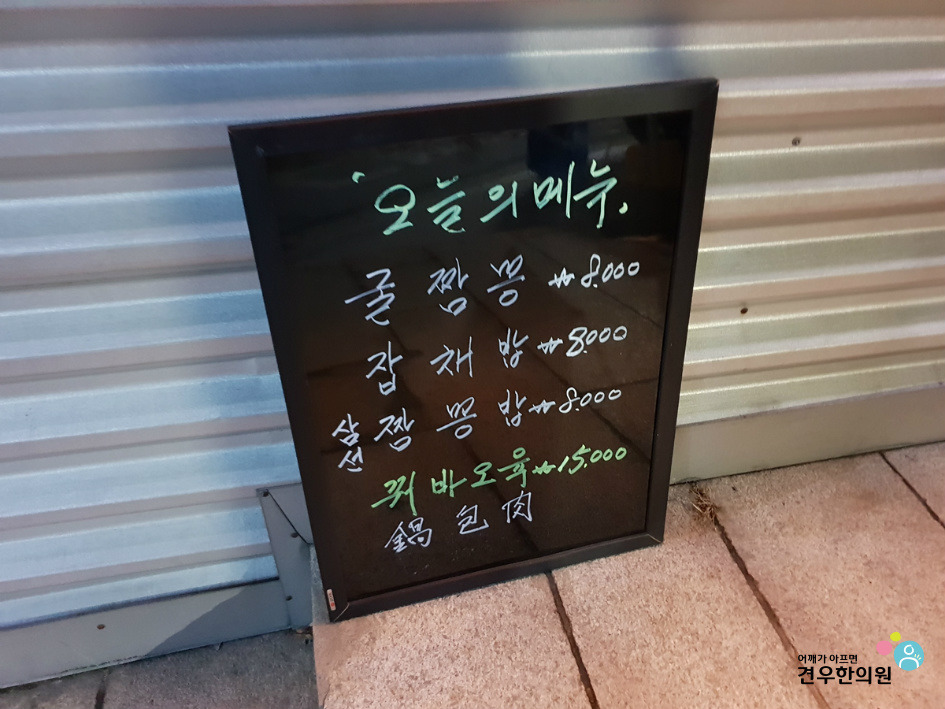 오늘의메뉴.
굴 짬뽕 ₩8.000
잡채밥 ₩8.000
삼선 짬뽕밥 ₩8.000
꿔바오육 ₩15.000
鍋包肉
어깨가 아프면
견우한의원